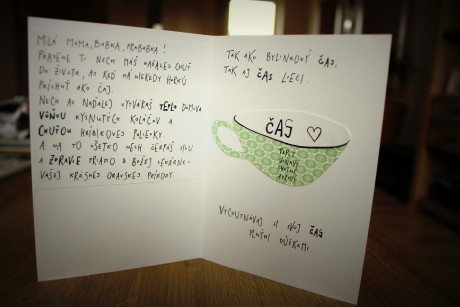 MILÁ MAMA, BABKA, PRABABKA!
PRAJEME TI NECH MÁŠ NAĎALEJ CHUŤ
DO ŽIVOTA, AJ KEĎ MÁ NIEKEDY HORKÚ
PRÍCHUŤ AKO ČAJ.
NECH AJ NAĎALEJ VYTVÁRAŠ TEPLO DOMOVA
VÔŇOU KYSNUTÝCH KOLÁČOV A
CHUŤOU HRÍBIKOVEJ POLIEVKY.
A NA TO VŠETKO NECH ČERPÁŠ SILU
A ZDRAVIE PRIAMO Z BOŽEJ LEKÁRNE -
VAŠEJ KRÁSNEJ ORAVSKEJ PRÍRODY.
TAK AKO BYLINKOVÝ ČAJ,
TAK AJ ČAS LIEČI.
ČAJ ♡
VYCHUTNÁVAJ SI SVOJ ČAS
PLNÝMI DÚŠKAMI.